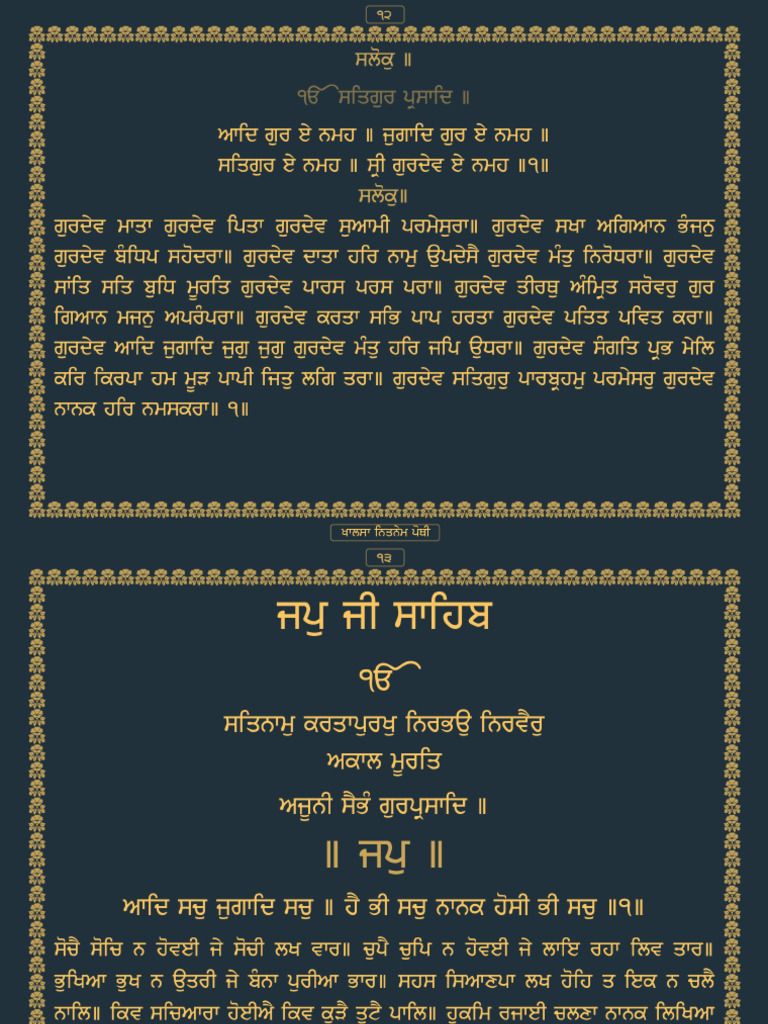 ੧੨
ਸਲੋਕੁ ॥
ੴ ਸਤਿਗੁਰ ਪ੍ਰਸਾਦਿ ॥
ਆਦਿ ਗੁਰ ਏ ਨਮਹ ॥ ਜੁਗਾਦਿ ਗੁਰ ਏ ਨਮਹ ॥
ਸਤਿਗੁਰ ਏ ਨਮਹ ॥ ਸ੍ਰੀ ਗੁਰਦੇਵ ਏ ਨਮਹ ॥੧॥
ਸਲੋਕੁ॥
ਗੁਰਦੇਵ ਮਾਤਾ ਗੁਰਦੇਵ ਪਿਤਾ ਗੁਰਦੇਵ ਸੁਆਮੀ ਪਰਮੇਸੁਰਾ॥ ਗੁਰਦੇਵ ਸਖਾ ਅਗਿਆਨ ਭੰਜਨੁ
ਗੁਰਦੇਵ ਬੰਧਿਪ ਸਹੋਦਰਾ॥ ਗੁਰਦੇਵ ਦਾਤਾ ਹਰਿ ਨਾਮੁ ਉਪਦੇਸੈ ਗੁਰਦੇਵ ਮੰਤੁ ਨਿਰੋਧਰਾ॥ ਗੁਰਦੇਵ
ਸਾਂਤਿ ਸਤਿ ਬੁਧਿ ਮੂਰਤਿ ਗੁਰਦੇਵ ਪਾਰਸ ਪਰਸ ਪਰਾ॥ ਗੁਰਦੇਵ ਤੀਰਥੁ ਅੰਮ੍ਰਿਤ ਸਰੋਵਰੁ ਗੁਰ
ਗਿਆਨ ਮਜਨੁ ਅਪਰੰਪਰਾ॥ ਗੁਰਦੇਵ ਕਰਤਾ ਸਭਿ ਪਾਪ ਹਰਤਾ ਗੁਰਦੇਵ ਪਤਿਤ ਪਵਿਤ ਕਰਾ॥
ਗੁਰਦੇਵ ਆਦਿ ਜੁਗਾਦਿ ਜੁਗੁ ਜੁਗੁ ਗੁਰਦੇਵ ਮੰਤੁ ਹਰਿ ਜਪਿ ਉਧਰਾ॥ ਗੁਰਦੇਵ ਸੰਗਤਿ ਪ੍ਰਭ ਮੇਲਿ
ਕਰਿ ਕਿਰਪਾ ਹਮ ਮੂੜ ਪਾਪੀ ਜਿਤੁ ਲਗਿ ਤਰਾ॥ ਗੁਰਦੇਵ ਸਤਿਗੁਰੁ ਪਾਰਬ੍ਰਹਮੁ ਪਰਮੇਸਰੁ ਗੁਰਦੇਵ
ਨਾਨਕ ਹਰਿ ਨਮਸਕਰਾ॥ ੧॥
ਖਾਲਸਾ ਨਿਤਨੇਮ ਪੋਥੀ
੧੩
ਜਪੁ ਜੀ ਸਾਹਿਬ
ੴ
ਸਤਿਨਾਮੁ ਕਰਤਾਪੁਰਖੁ ਨਿਰਭਉ ਨਿਰਵੈਰੁ
ਅਕਾਲ ਮੂਰਤਿ
ਅਜੂਨੀ ਸੈਭੰ ਗੁਰਪ੍ਰਸਾਦਿ ॥
॥ ਜਪੁ ॥
ਆਦਿ ਸਚੁ ਜੁਗਾਦਿ ਸਚੁ ॥ ਹੈ ਭੀ ਸਚੁ ਨਾਨਕ ਹੋਸੀ ਭੀ ਸਚੁ ॥੧॥
ਸੋਚੈ ਸੋਚਿ ਨ ਹੋਵਈ ਜੇ ਸੋਚੀ ਲਖ ਵਾਰ॥ ਚੁਪੈ ਚੁਪਿ ਨ ਹੋਵਈ ਜੇ ਲਾਇ ਰਹਾ ਲਿਵ ਤਾਰ॥
ਭੁਖਿਆ ਭੁਖ ਨ ਉਤਰੀ ਜੇ ਬੰਨਾ ਪੁਰੀਆ ਭਾਰ॥ ਸਹਸ ਸਿਆਣਪਾ ਲਖ ਹੋਹਿ ਤ ਇਕ ਨ ਚਲੈ
ਨਾਲਿ॥ ਕਿਵ ਸਚਿਆਰਾ ਹੋਈਐ ਕਿਵ ਕੂੜੈ ਤੁਟੈ ਪਾਲਿ॥ ਹੁਕਮਿ ਰਜਾਈ ਚਲਣਾ ਨਾਨਕ ਲਿਖਿਆ